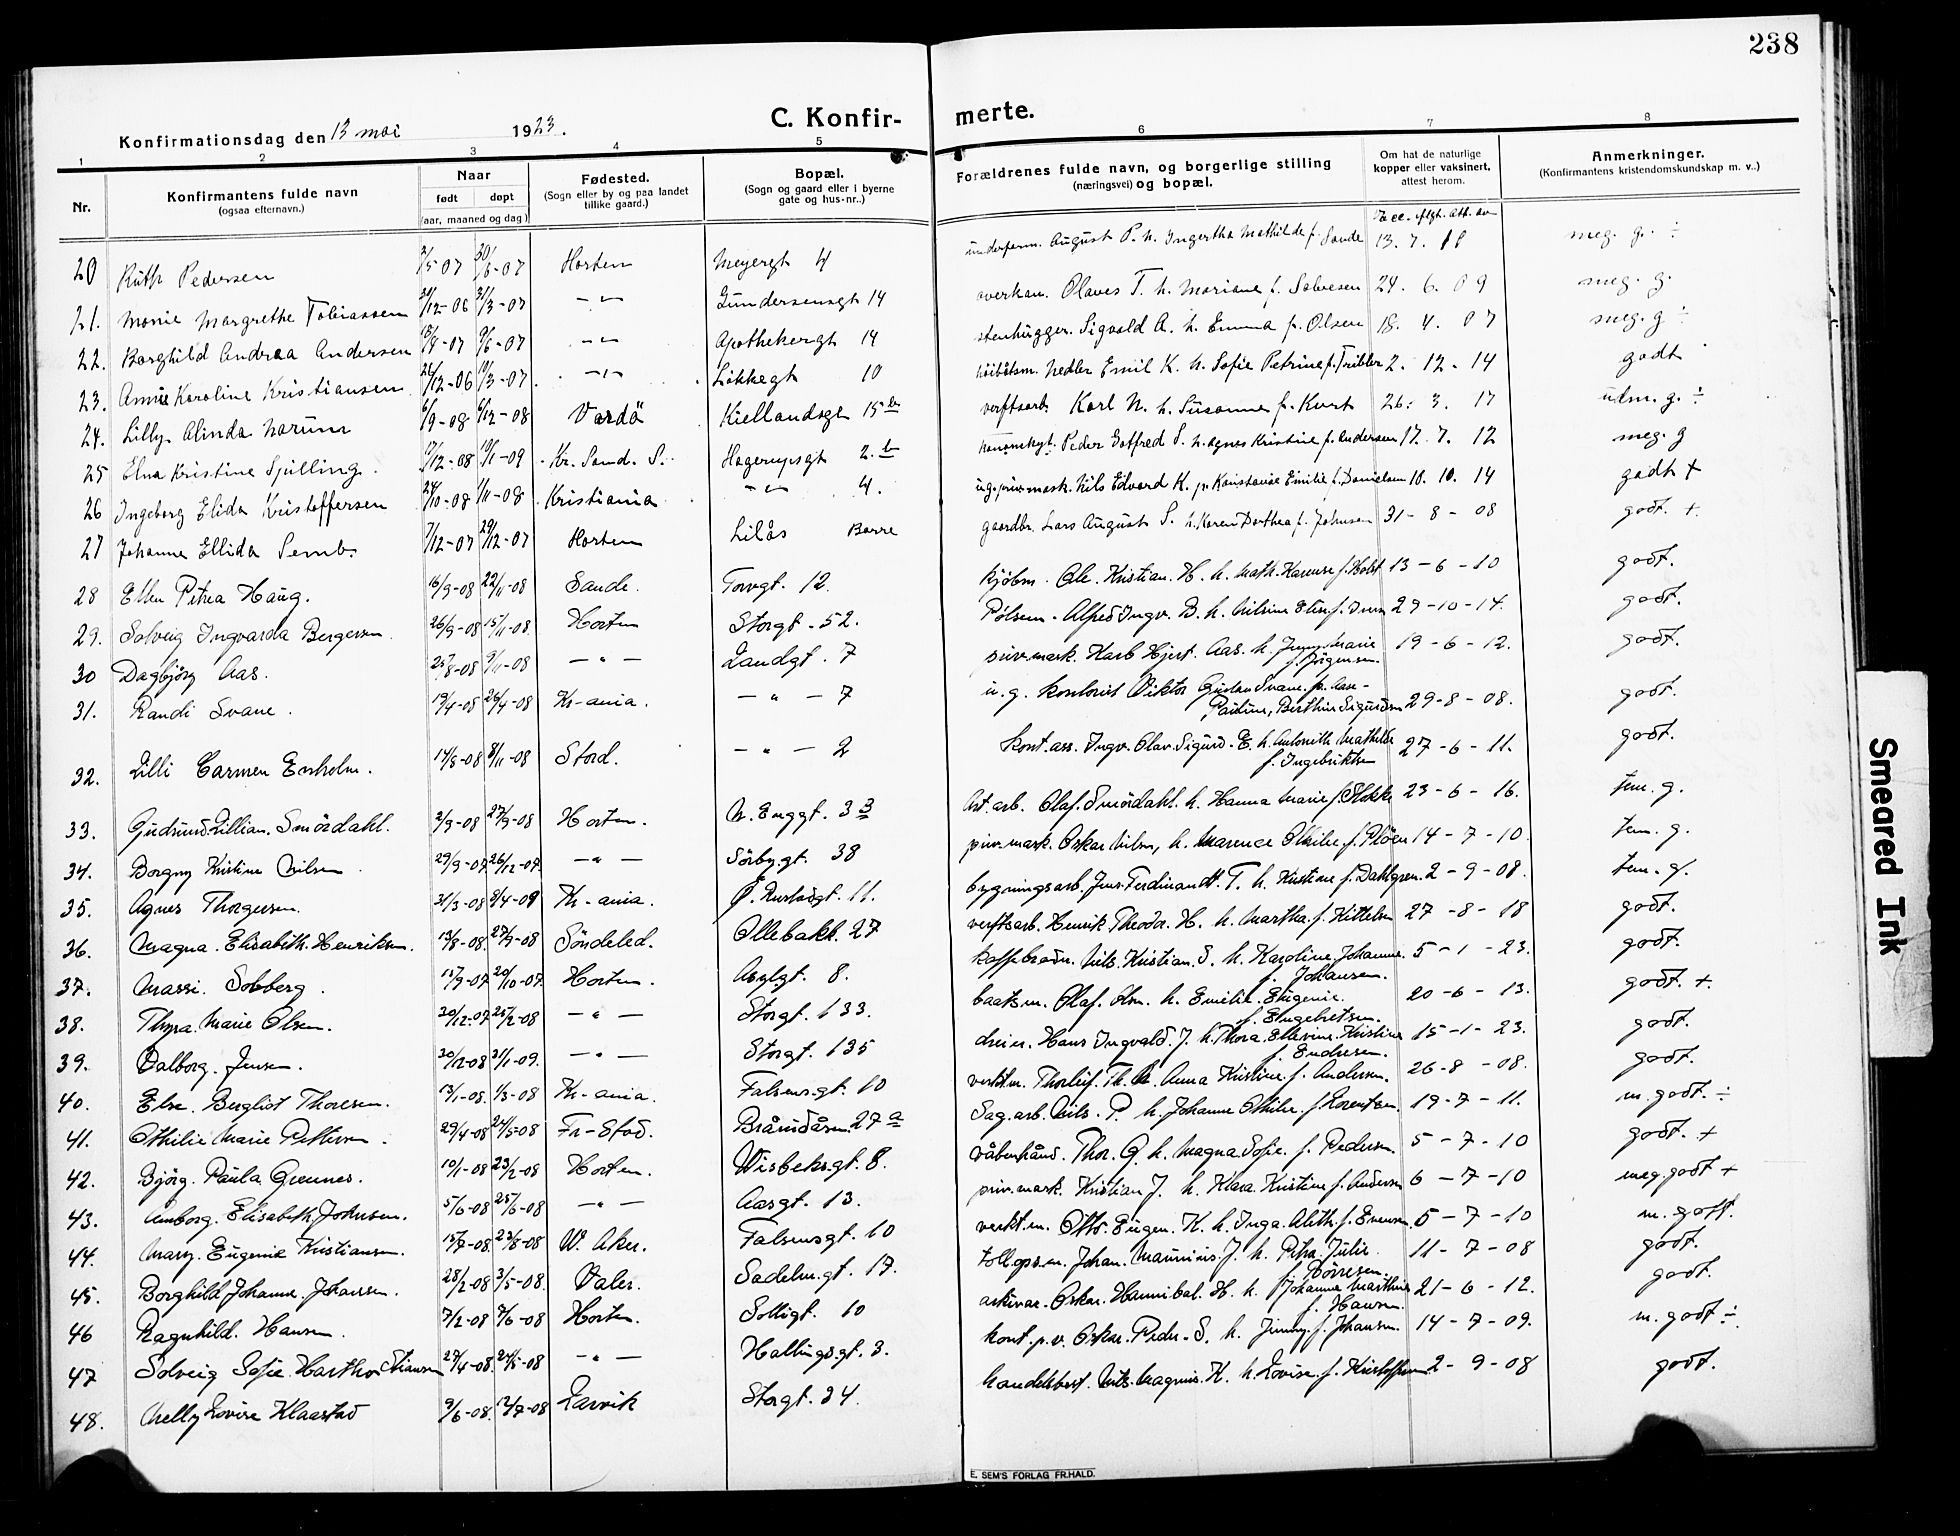 238
Konfirmationsdag den 13 mai 1923.
C. Konfirmerte.
1 2 3 4 5 6 7 8
Nr.
Konfirmantens fulde navn
(ogsaa efternavn.)
Naar
født døpt
(aar, maaned og dag)
Fødested.
(Sogn eller by og paa landet
tillike gaard.)
Bopæl.
(Sogn og gaard eller i byerne
gate og hus-nr..)
Forældrenes fulde navn, og borgerlige stilling
(næringsvei) og bopæl.
Om hat de naturlige
kopper eller vaksinert,
attest herom.
Anmerkninger.
(Konfirmantens kristendomskundskap m. v..)
20 Ruth Pedersen 2/5-07 30/6-07 Horten Meyergt 4 underferm. August P. h. Ingertha Mathilde f. Sande 13. 7. 11 meg. g. ÷
21. Marie Margrethe Tobiassen 30/12-06 31/3-07 -"- Gundersensgt 14 Olaves T. h. Mariane f. Salvesen 24. 6. 09 meg. g.
22. Borghild Andrea Andersen 18/4-07 9/6-07 -"- Apothekergt 14 stenhugger. Sigvald A. h. Emma f. Olsen 18. 4. 07 meg. g ÷
23. Karoline Kristiansen 26/12-06 10/3-07 -"- Løkkegt 10 Emil K. h. Sofie Petrine f. 2. 12. 14 godt
24. Lilly Alinda Narum 6/9-08 6/12-08 Vardö Kiellandsgt 15 b verftsarb. Karl N. h. Susanne f. Kurt 26. 3. 17 udm. g. ÷
25 Elna Kristine Spilling. 17/12-08 10/1-09 Kr. Sand. S. Hagerupsgt 2. b Peder Gotfred S. h. Agnes Kristine f. Andersen 17. 7. 12 meg. g
26 Ingeborg Elida Kristoffersen 24/10-08 1/11-08 Kristiania -"- 4. Nils Edvard K. Konstanse Emilie f. Danielsen 10. 10. 14 godt +
27 Johanne Ellida Semb. 7/12-07 29/12-07 Horten Lilås Borre gaardbr. Lars August S. h. Karen Dorthea f. Johnsen 31-8-08 godt. +
28 Ellen Petrea Haug. 16/9-08 22/11-08 Sande. Torvgt. 12. kjøbm. Ole. Kristian. H. h. Math. f. Holst 13-6-10 godt.
29. Solveig Ingvarda Bergersen 26/9-08 15/11-08 Horten Storgt. 52. Pølsem. Alfred Ingv. B. h. 29-10-14. godt.
30 Dagbjørg Aas. 25/8-08 9/11-08 -"- Landgt. 7 priv. mask. Karl Hjert. Aas. h. Jenny Marie f. Jørgensen. 19-6-12. godt.
31. Randi Svane. 19/4-08 26/4-08 Kr-ania. -"- 7 u. g. kontorist Viktor Gustav Svane. Pauline, Berthine Sigurdsen 29-8-08. godt.
32. Lilli Carmen Enholm. 14/9-08 8/11-08 Stord. -"- 2 kont. ass. Ingv. Olav. Sigurd. E. h. Mathilde f. Ingebriktsen 27-6-11. godt.
33. Gudrund Lillian. Smördahl. 2/9-08 27/9-08 Horten. N. Enggt. 33 Art. arb. Olaf. Smördahl. h. Hanna Marie f. 23-6-16. tem. g.
34. Borgny Kristine Nilsen 29/9-07 26/12-07 -"- Sörbygt. 38 priv. mask. Oskar Nilsen, h. Marence Othilie. f. Pløen 14-7-10. tem. g.
35. Agnes Thorgersen. 31/3-08 9/4-09 Kr-ania. 11. bygningsarb. Jens Ferdinand. T. h. Kristine f. Dahlgren. 2-9-08. tem. g.
36. Magna. Elisabeth. Henriksen. 13/8-08 27/9-08 Söndeled. Ollebakk. 27 verftsarb. Henrik Theodor. H. h. Martha. f. Kittelsen 27-8-18 godt.
37. Massi. Solberg. 15/9-07 20/10-07 Horten. Asylgt. 8. Nils. Kristian. S. h. Karoline Johanne. f. Johansen. 5-1-23. godt.
38. Thyra. Marie Olsen. 20/12-07 25/2-08 -"- Storgt. 133. baatsm. Olaf. Olsn. h. Emilie Eugenie. f. Engebretsen. 20-6-13. godt. +
39. Valborg. Jensen. 30/12-08 31/1-09. -"- Storgt. 135 dreier. Hans Ingvald. J. h. Thora Kristine f. Endresen. 15-1-23. godt.
40. Else. Bergliot Thoresen. 13/1-08. 1/3-08 Kr-ania. Falsensgt. 10 verkm. Thorleif. Th. h. Anna Kristine f. Andersen. 26-8-08. godt.
41. Othilie Marie Pettersen. 29/4-08 24/5-08 Fr-Stad. 27 a Sag. arb. Nils. P. h. Johanne Othilie f. Lorentsen. 19-7-11. m. godt. ÷
42. Bjørg. Paula. Grennes. 10/1-08 23/2-08 Horten. Wisbeksgt. 8. Thor. G. h. Magna Sofie. f. Pedersen. 5-7-10 godt. +
43. Elisabeth Johnsen. 5/6-08 25/6-08 -"- Aasgt. 13. priv. mask. Kristian J. h. Klara Kristine f. Andersen 6-7-10 meg. godt +
44. Mary. Eugenie Kristiansen. 15/7-08. 23/8-08 W. Aker. Falsensgt. 10 verkt. m. Otto. Eugen. K. h. Inga. Alith. f. Evensen. 5-7-10 m. gott.
45. Borghild Johanne. Johansen. 28/2-08 3/5-08. Valer. Sadelm.gt. 17. tollops. m. Johan. J. h. Petra. Julie. 11-7-08 godt.
46 Ragnhild. Hansen. 7/2-08 7/6-08 Horten. Solligt. 10 arkivar. Oskar. Hannibal. H. h. Johanne Marthine f. Hansen. 21-6-12. godt.
47 Solveig Sofie. 27/4-08. 24/5-08 -"- Hallingsgt. 3. kont. p. v. Oskar. Peder. S. h. Jenny. f. Johansen. 14-7-09. m. godt ÷
48. Nelly Lovise Klaastad 9/6-08. 12/7-08 Larvik Storgt. 34. handelsbest. Nils. Magnus. K. h. Lovise. f. Kristoffersen 2-9-08 godt.
E. SEM'S FORLAG FR.HALD.
Smeared Ink